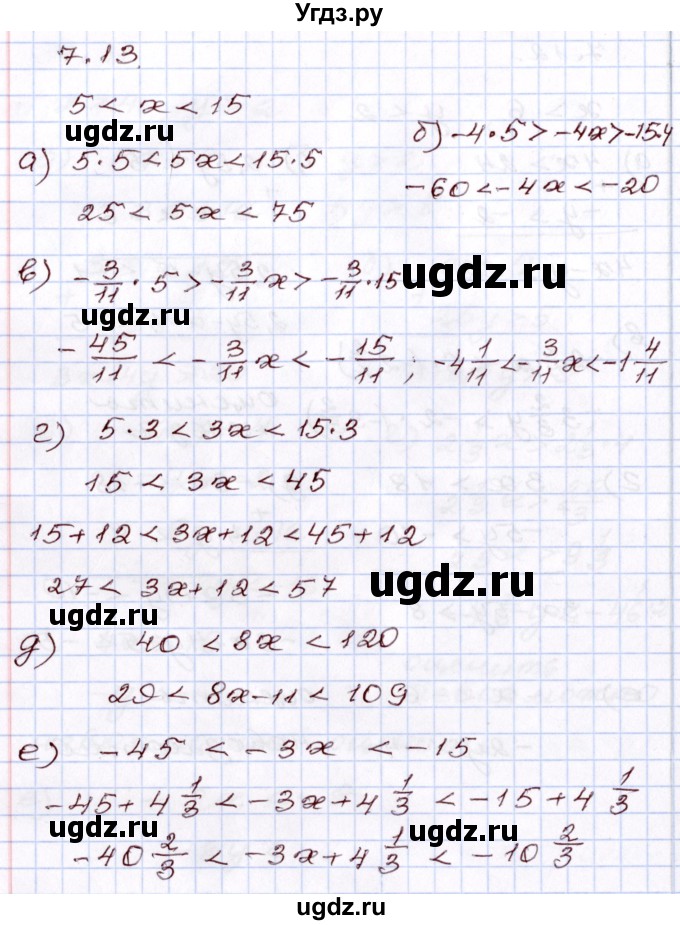 Угдз.ру
7.13.
5 < x < 15
ugdz.ru
а) 5·5 < 5x < 15·5
25 < 5x < 75
ugdz.ru
б) -4·5 > -4x > -15·4
-60 < -4x < -20
в) -3/11 · 5 > -3/11 x > -3/11 · 15
ugdz.ru
ugdz.ru
-45/11 < -3/11 x < -15/11 ; -4 1/11 < -3/11 x < -1 4/11
г) 5·3 < 3x < 15·3
15 < 3x < 45
15+12 < 3x+12 < 45+12
27 < 3x+12 < 57
ugdz.ru
ugdz.ru
д) 40 < 8x < 120
29 < 8x-11 < 109
е) -45 < -3x < -15
-45+4 1/3 < -3x+4 1/3 < -15+4 1/3
ugdz.ru
ugdz.ru
-40 2/3 < -3x+4 1/3 < -10 2/3
ugdz.ru